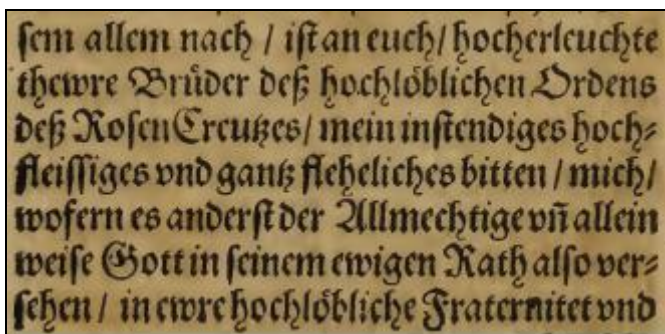 sem allem nach / ist an euch / hocherleuchte
thewre Brůder deß hochlöblichen Ordens
deß RosenCreutzes / mein instendiges hoch⸗
fleissiges vnd gantz fleheliches bitten / mich /
wofern es anderst der Allmechtige vñ allein
weise Gott in seinem ewigen Rath also ver⸗
sehen / in ewre hochlöbliche Fraternitet vnd